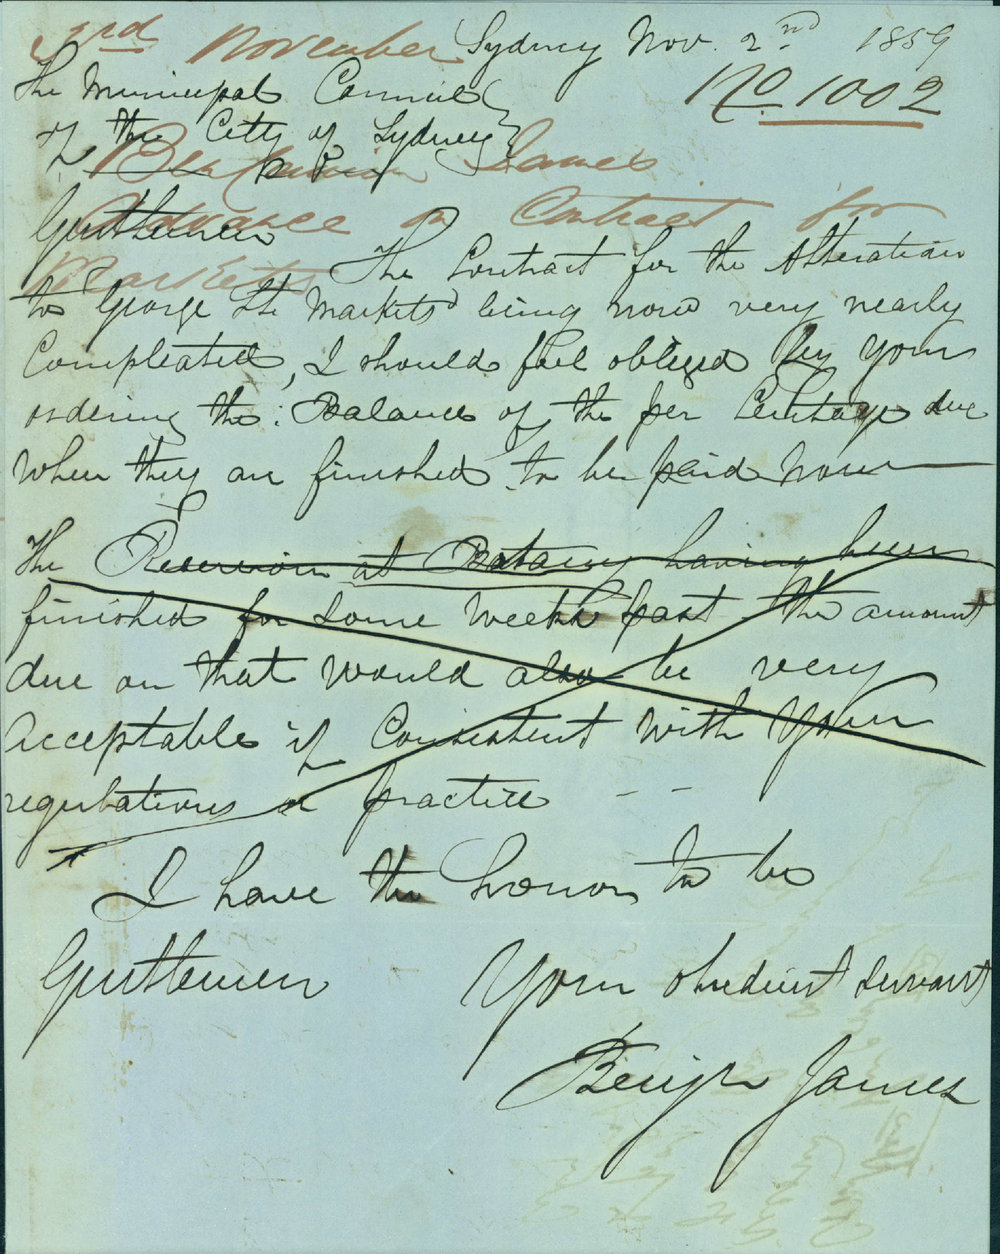 3rd November
Sydney Nov. 2nd 1859
No. 1002
The Municipal Council
of the City of Sydney
Benjamin James
Advance on Contract for
Markets
Gentlemen
The Contract for the Alteration
to George St Markets being now very nearly
Compleated, I should feel obliged by your
ordering the Balance of the per Centage due
when they are finished to be paid now
The Reservoir at Botany having been
finished for some weeks past the amount
due on that would also be very
acceptable if Consistent with your
regulations or practice - -
I have the honor to be
Gentlemen
Your obedient Servant
Benjn James